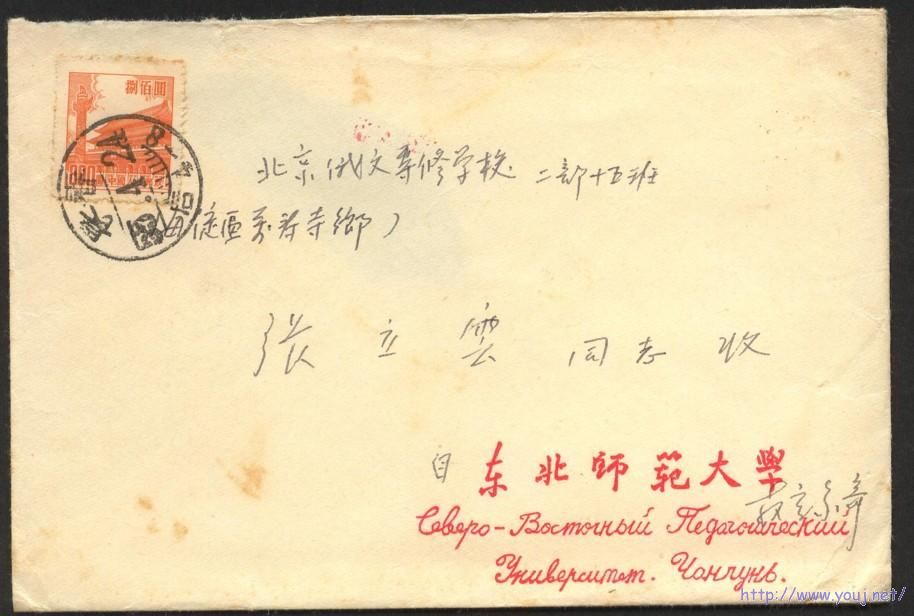 捌佰圓
800
北京俄文專修学校 二部十五班
海淀區萬寿寺鄉)
张立雲 同志 收
自 东北師範大學
教育系
Северо-Восточный Педагогический
Университет. Чанчунь.
http://www.youj.net/